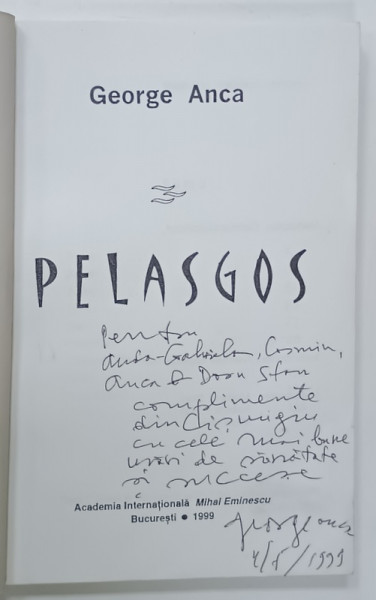 George Anca
PELASGOS
Pentru
Anda-Gabriela, Cosmin,
Anca & Doru Stan
complimente
din Cişmigiu
cu cele mai bune
urări de sănătate
şi succese
Academia Internaţională Mihai Eminescu
Bucureşti ● 1999
George Anca
4/5/1999